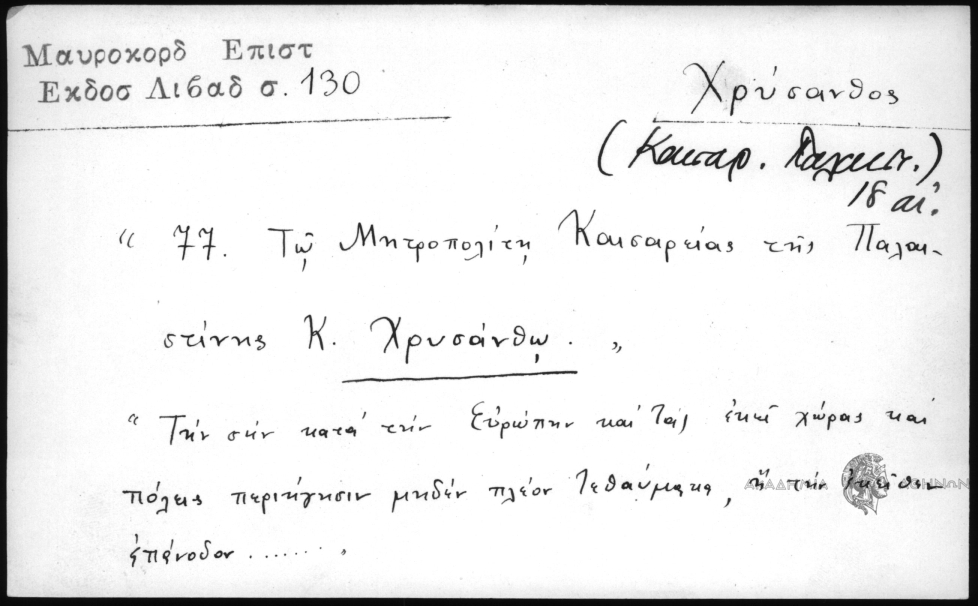 Μαυροκορδ Επιστ
Εκδοσ Λιβαδ σ. 130
Χρύσανθος
(Καισαρ. Παλαιστ.)
18 αἰ.
“ 77. Τῷ Μητροπολίτῃ Καισαρείας τῆς Παλαι-
στίνης Κ. Χρυσάνθῳ. „
“ Τὴν σὴν κατὰ τὴν Εὐρώπην καὶ τὰς ἐκεῖ χώρας καὶ
πόλεις περιήγησιν μηδὲν πλέον τεθαύμακα, ἢ τὴν ἐκεῖθεν
ἐπάνοδον ....... „
ΑΚΑΔΗΜΙΑ ΑΘΗΝΩΝ